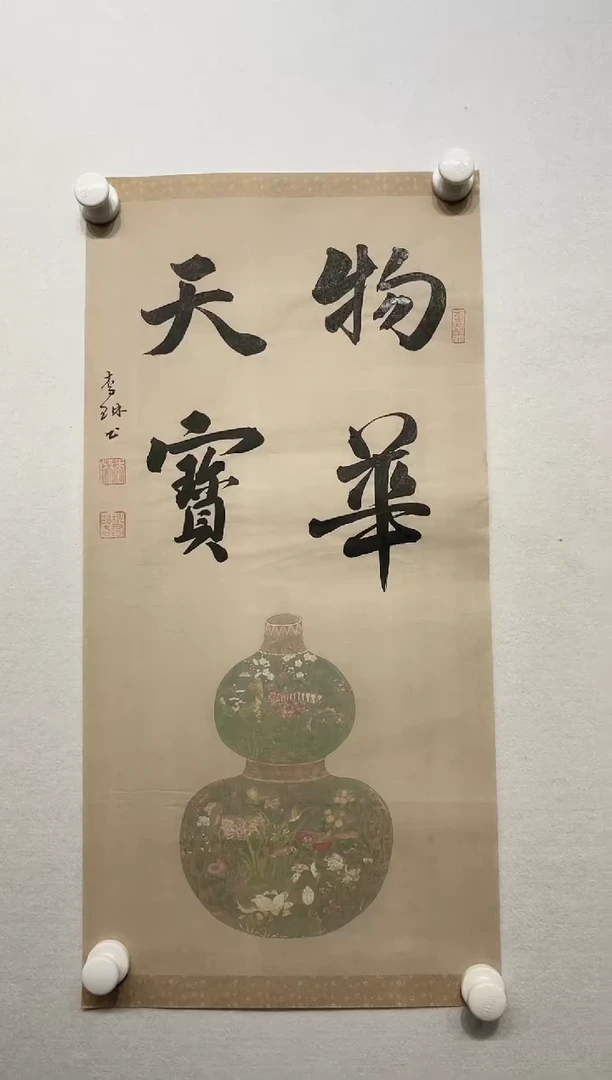 物華
天寶
李琳书